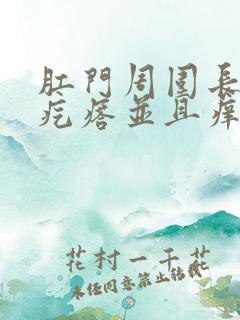 肛門周圍長
疙瘩並且癢
花村一千花
未經同意禁止轉載